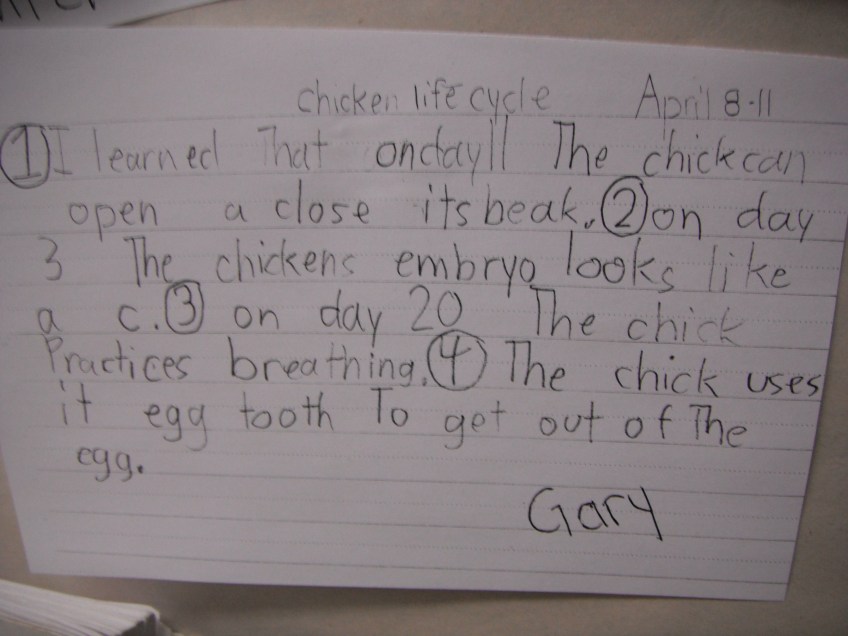 chicken life cycle April 8-11
① I learned That on day 11 The chick can
open a close its beak. ② on day
3 The chickens embryo looks like
a c. ③ on day 20 The chick
Practices breathing. ④ The chick uses
it egg tooth To get out of The
egg.
Gary